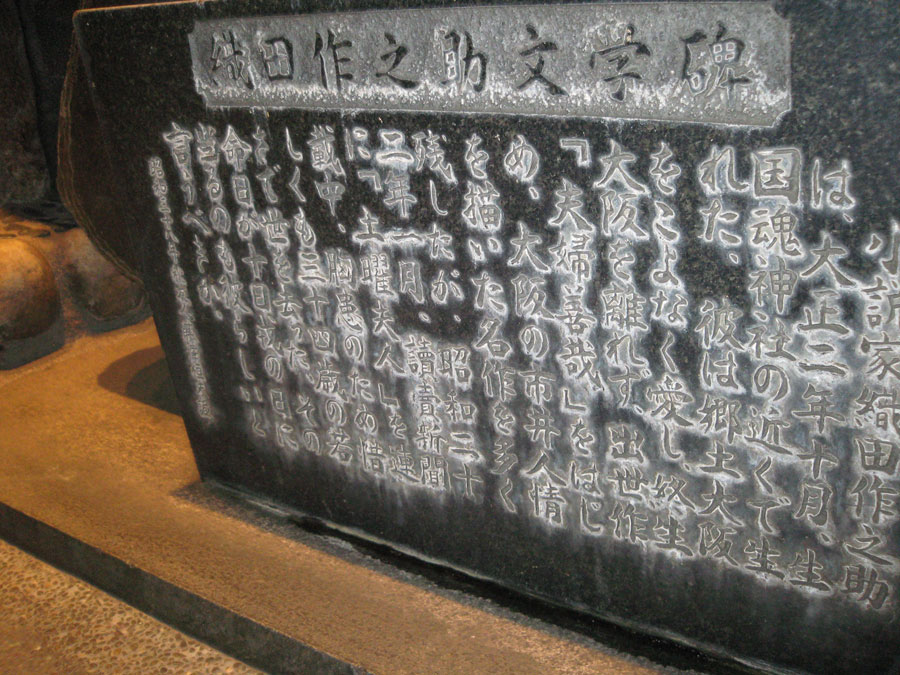 織田作之助文学碑
小説家織田作之助
は、大正二年十月、生
国魂神社の近くで生
れた、彼は郷土大阪
をこよなく愛し、終生
大阪を離れず、出世作
「夫婦善哉」をはじ
め、大阪の市井人情
を描いた名作を多く
残したが、昭和二十
二年一月、讀賣新聞
に「土曜夫人」を連
載中、胸患のため惜
しくも三十四歳の若
さで世を去った、その
命日が十日
言うべきか